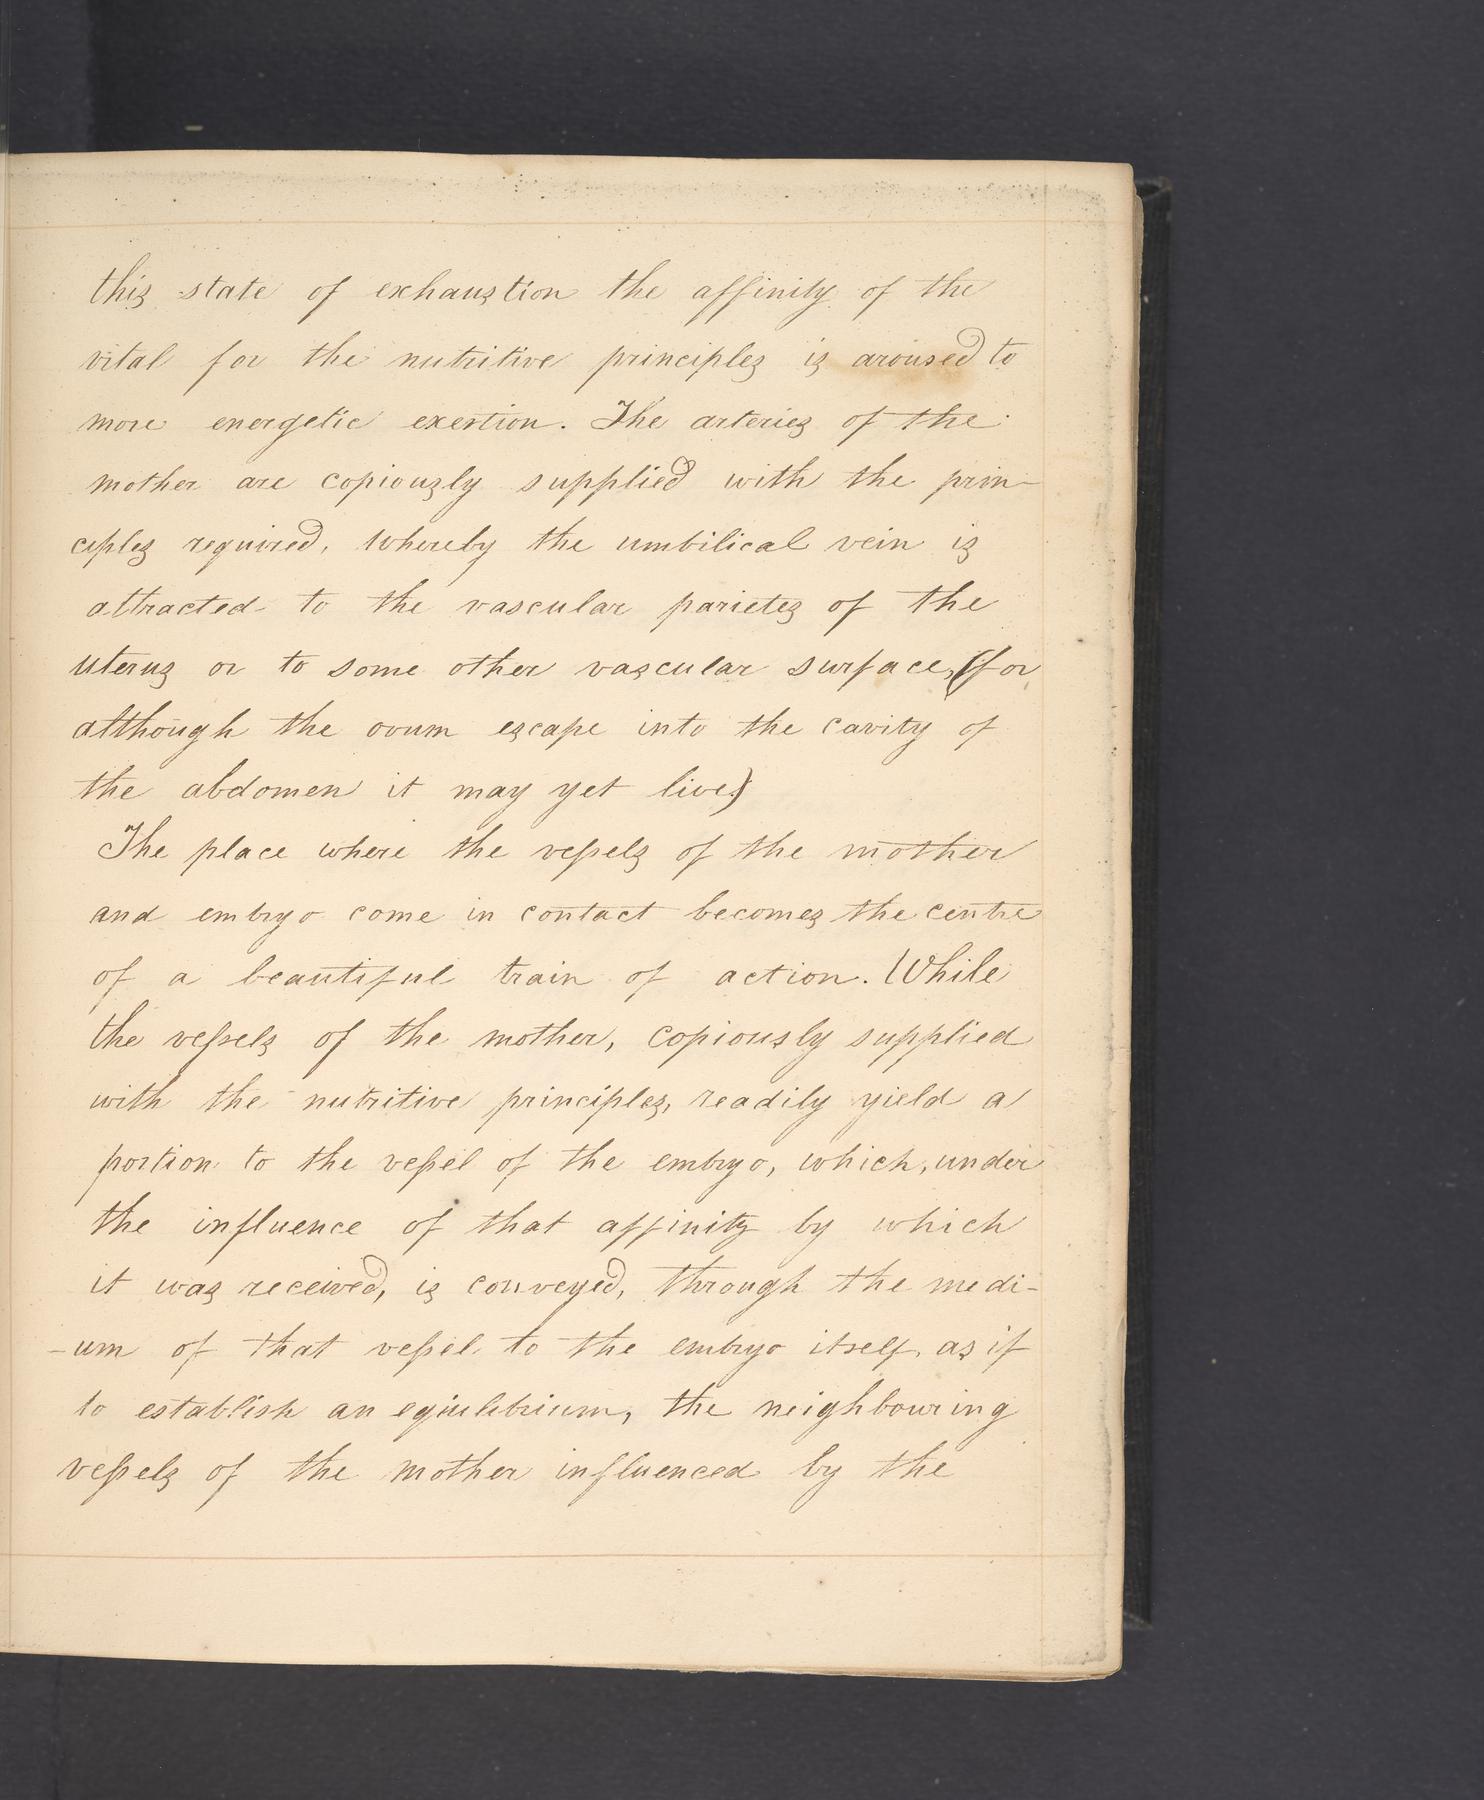 this state of exhaustion the affinity of the
vital for the nutritive principles is aroused to
more energetic exertion. The arteries of the
mother are copiously supplied with the prin-
ciples required, whereby the umbilical vein is
attracted to the vascular parietes of the
uterus or to some other vascular surface, (for
although the ovum escape into the cavity of
the abdomen it may yet live)
The place where the vessels of the mother
and embryo come in contact becomes the centre
of a beautiful train of action. While
the vessels of the mother, copiously supplied
with the nutritive principles, readily yield a
portion to the vessel of the embryo, which, under
the influence of that affinity by which
it was received, is conveyed, through the medi-
-um of that vessel to the embryo itself, as if
to establish an equilibrium, the neighbouring
vessels of the mother influenced by the